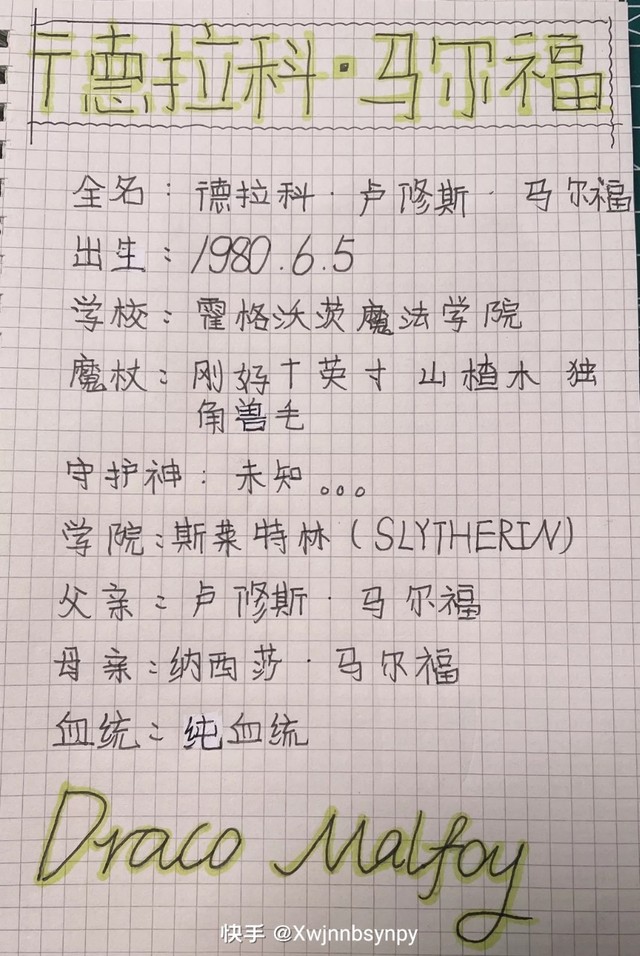 德拉科·马尔福
全名：德拉科·卢修斯·马尔福
出生：1980.6.5
学校：霍格沃茨魔法学院
魔杖：刚好十英寸 山楂木 独
角兽毛
守护神：未知。。。
学院：斯莱特林（SLYTHERIN）
父亲：卢修斯·马尔福
母亲：纳西莎·马尔福
血统：纯血统
Draco Malfoy
快手 @Xwjnnbsynpy